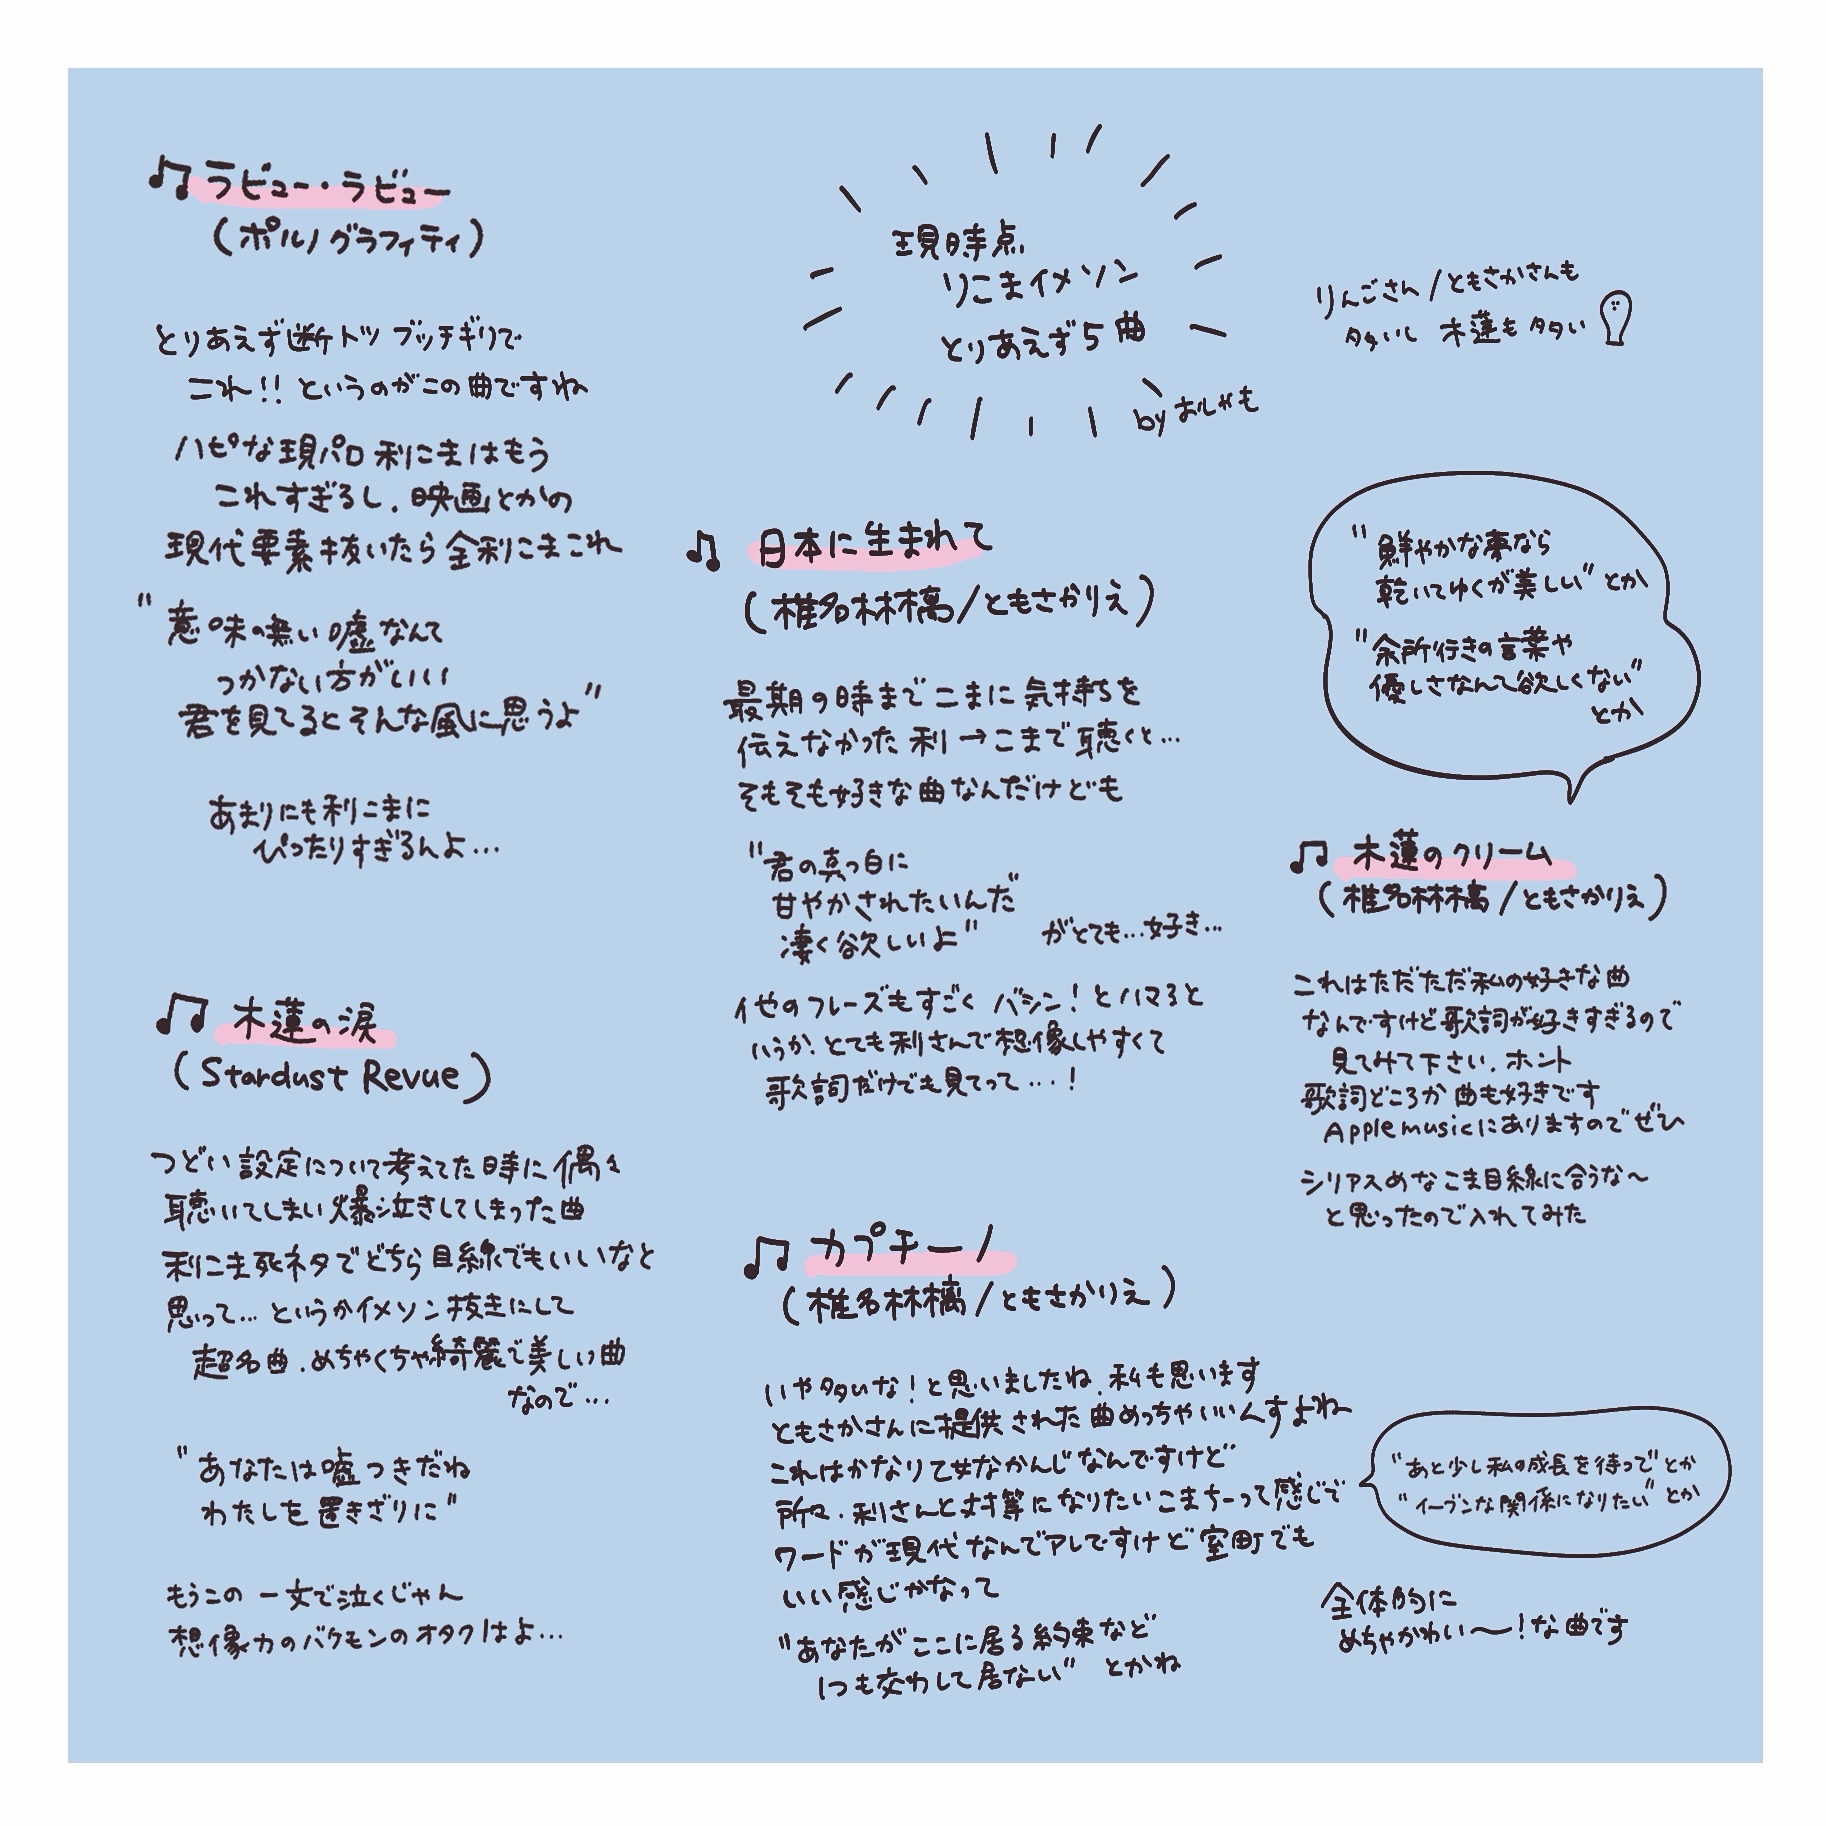 現時点
りこまイメソン
とりあえず5曲
by おしゃも
りんごさん/ともさかさんも
多いし 木蓮も多い
♫ ラビュー・ラビュー
(ポルノグラフィティ)
とりあえず断トツ ブッチギリで
これ!! というのがこの曲ですね
ハピな現パロ利こまはもう
これすぎるし、映画とかの
現代要素抜いたら全利こまこれ
"意味の無い嘘なんて
つかない方がいい
君を見てるとそんな風に思うよ"
あまりにも利こまに
ぴったりすぎるんよ…
♫ 木蓮の涙
(Stardust Revue)
つどい設定について考えてた時に偶々
聴いてしまい爆泣きしてしまった曲
利こま死ネタでどちら目線でもいいなと
思って… というかイメソン抜きにして
超名曲、めちゃくちゃ綺麗で美しい曲
なので…
"あなたは嘘つきだね
わたしを置きざりに"
もうこの一文で泣くじゃん
想像力のバケモンのオタクはよ…
♫ 日本に生まれて
(椎名林檎/ともさかりえ)
最期の時までこまに気持ちを
伝えなかった利→こまで聴くと…
そもそも好きな曲なんだけども
"君の真っ白に
甘やかされたいんだ
凄く欲しいよ" がとても…好き…
他のフレーズもすごく バシン!とハマると
いうか、とても利さんで想像しやすくて
歌詞だけでも見てって…!
♫ カプチーノ
(椎名林檎/ともさかりえ)
いや多いな!と思いましたね、私も思います
ともさかさんに提供された曲めっちゃいいんすよね
これはかなり乙女なかんじなんですけど
所々、利さんと対等になりたいこまちーって感じで
ワードが現代なんでアレですけど室町でも
いい感じかなって
"あなたがここに居る約束など
1つも交わして居ない" とかね
"あと少し私の成長を待って"とか
"イーブンな関係になりたい"とか
全体的に
めちゃかわい〜!な曲です
"鮮やかな夢なら
乾いてゆくが美しい"とか
"余所行きの言葉や
優しさなんて欲しくない"
とか
♫ 木蓮のクリーム
(椎名林檎/ともさかりえ)
これはただただ私の好きな曲
なんですけど歌詞が好きすぎるので
見てみて下さい、ホント
歌詞どころか曲も好きです
Apple musicにありますのでぜひ
シリアスめなこま目線に合うな〜
と思ったので入れてみた